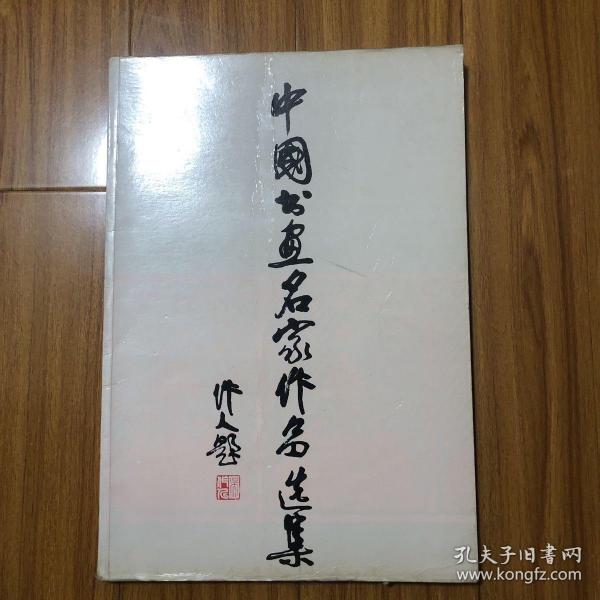 中國书画名家作品选集
作人题
孔夫子旧書网
www.kongfz.com